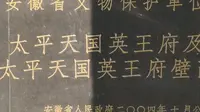 安徽省文物保护单位
太平天国英王府及
太平天国英王府壁画
安徽省人民政府二〇〇四年十月公